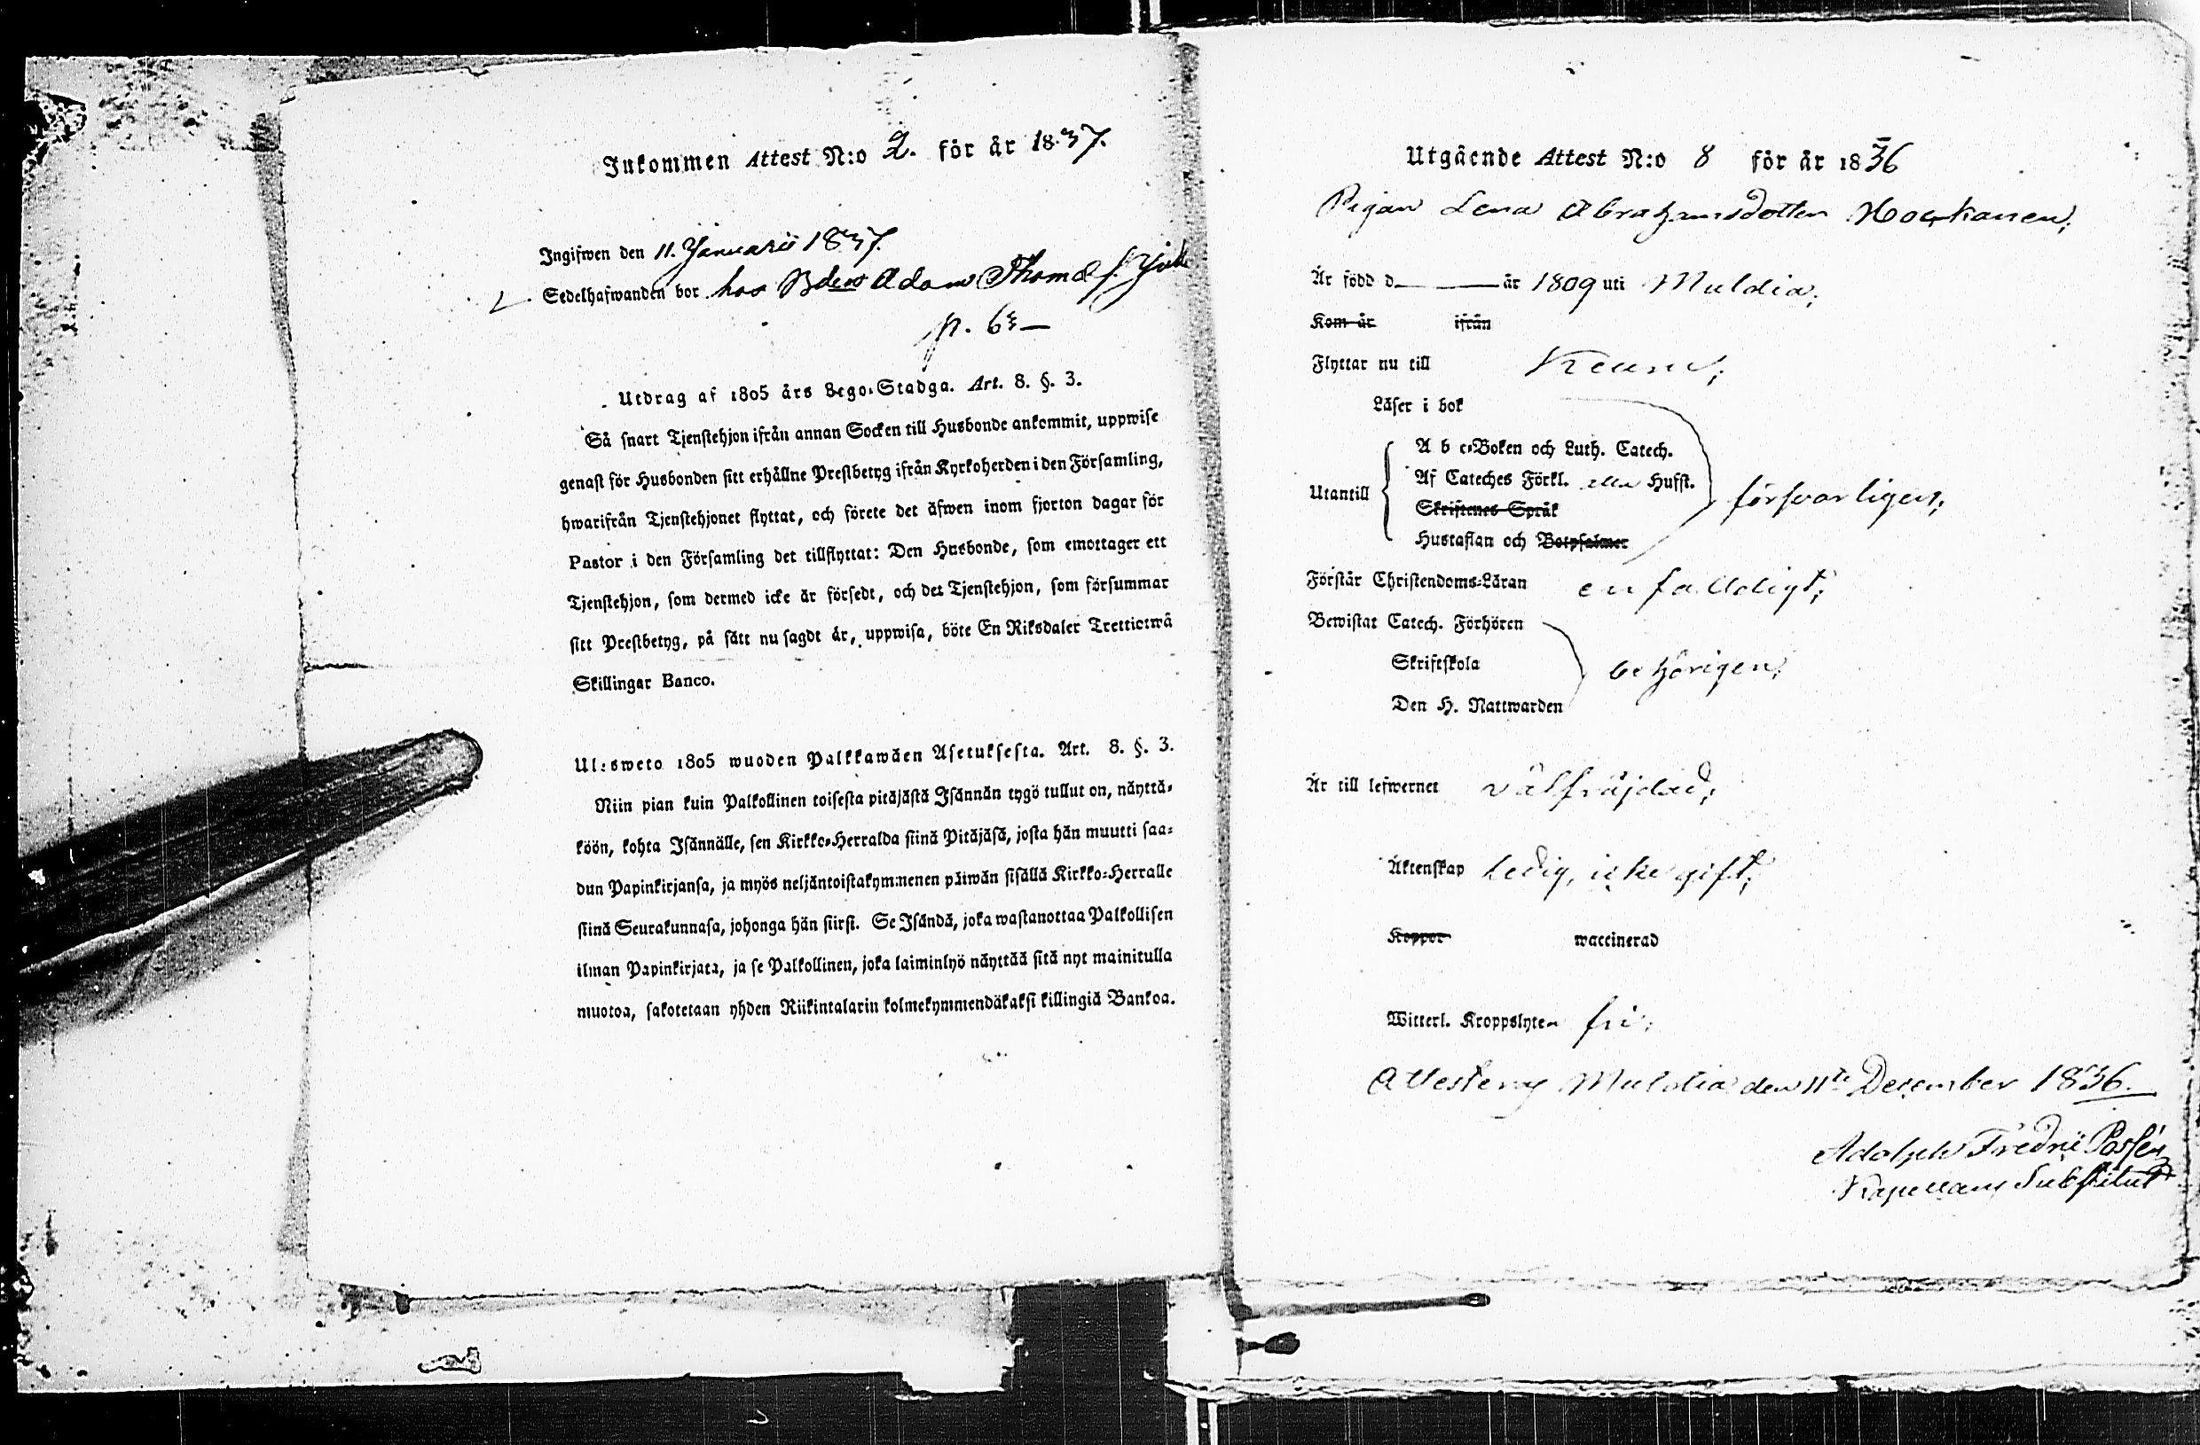 Inkommen Attest N:o 2. för år 1837.
Ingifwen den 11. Januarii 1837.
Sedelhafwanden bor hos Bden Adam Thomæ f.
p. 63
Utdrag af 1805 års Lego-Stadga. Art. 8. §. 3.
Så snart Tjenstehjon ifrån annan Socken till Husbonde ankommit, uppwise
genast för Husbonden sitt erhållne Prestbetyg ifrån Kyrkoherden i den Församling,
hwarifrån Tjenstehjonet flyttat, och förete det äfwen inom fjorton dagar för
Pastor i den Församling det tillflyttat: Den Husbonde, som emottager ett
Tjenstehjon, som dermed icke är försedt, och det Tjenstehjon, som försummar
sitt Prestbetyg, på sätt nu sagdt är, uppwisa, böte En Riksdaler Trettiotwå
Skillingar Banco.
Ulosweto 1805 wuoden Palkkawäen Asetuksesta. Art. 8. §. 3.
Niin pian kuin Palkollinen toisesta pitäjästä Isännän tygö tullut on, näyttä-
köön, kohta Isännälle, sen Kirkko-Herralda siinä Pitäjäsä, josta hän muutti saa-
dun Papinkirjansa, ja myös neljäntoistakymmenen päiwän sisällä Kirkko-Herralle
siinä Seurakunnasa, johonga hän siirsi. Se Isändä, joka wastanottaa Palkollisen
ilman Papinkirjata, ja se Palkollinen, joka laiminlyö näyttää sitä nyt mainitulla
muotoa, sakotetaan yhden Riikintalarin kolmekymmendäkaksi killingiä Bankoa.
Utgående Attest N:o 8 för år 1836
Pigan Lena Abrahamsdotter Hoækanen;
Är född d är 1809 uti Muldia;
Kom år ifrån
Flyttar nu till Keuru;
Läser i bok
A b c-Boken och Luth. Catech.
Utantill Af Cateches Förkl. eller Husst. försvarligen;
Skriftenes Språk
Hustaflan och Botpsalmer
Förstår Christendoms-Läran enfaldigt;
Bewistat Catech. Förhören
Skriftskola behörigen;
Den H. Nattwarden
Är till lefwernet välfräjdad;
Äktenskap ledig, icke gift;
Koppor waccinerad
Witterl. Kroppslyten fri;
Attesteras Muldia den 11te December 1836.
Adolph Fredric Possén
Kapellans Substitut